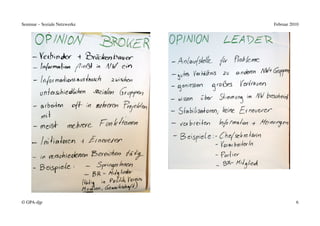 Seminar – Soziale Netzwerke
Februar 2010
OPINION BROKER
- Verbinder + Brückenbauer
- Information fließt in NW ein
- Informationsaustausch zwischen
unterschiedlichen sozialen Gruppen
- arbeiten oft in mehreren Projekten
mit
- meist mehrere Funktionen
- Initiatoren + Erneuerer
- in verschiedenen Bereichen tätig
- Beispiele: - SpringerInnen
- BR-Mitglieder
(tätig in Politik, Verein
Medien, Gewerkschaft)
OPINION LEADER
- Anlaufstelle für Probleme
- gutes Verhältnis zu anderen NW + Gruppen
- geniessen großes Vertrauen
- wissen über Stimmung in NW bescheid
- Stabilisatoren, keine Erneuerer
- verbreiten Information + Meinungen
- Beispiele: - Chefsekretärin
- VorarbeiterIn
- Portier
- BR-Mitglied
© GPA-djp
6